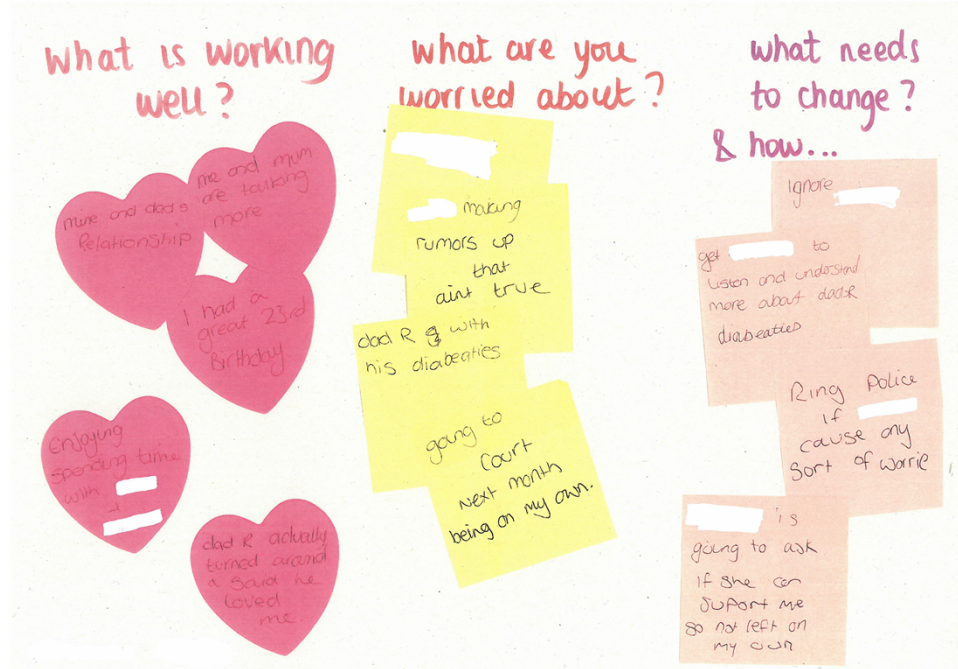 What is working
well?
mine and dad's
Relationship
me and mum
are talking
more
I had a
great 23rd
Birthday
Enjoying
spending time
with
+
dad R actually
turned around
a said he
loved
me
what are you
worried about?
making
rumors up
that
aint true
dad R with
his diabeaties
going to
court
next month
being on my own.
what needs
to change?
& how...
Ignore
get to
listen and understand
more about dad R
diabeaties
Ring Police
if
cause any
sort of worrie
is
going to ask
if she can
suport me
so not left on
my own